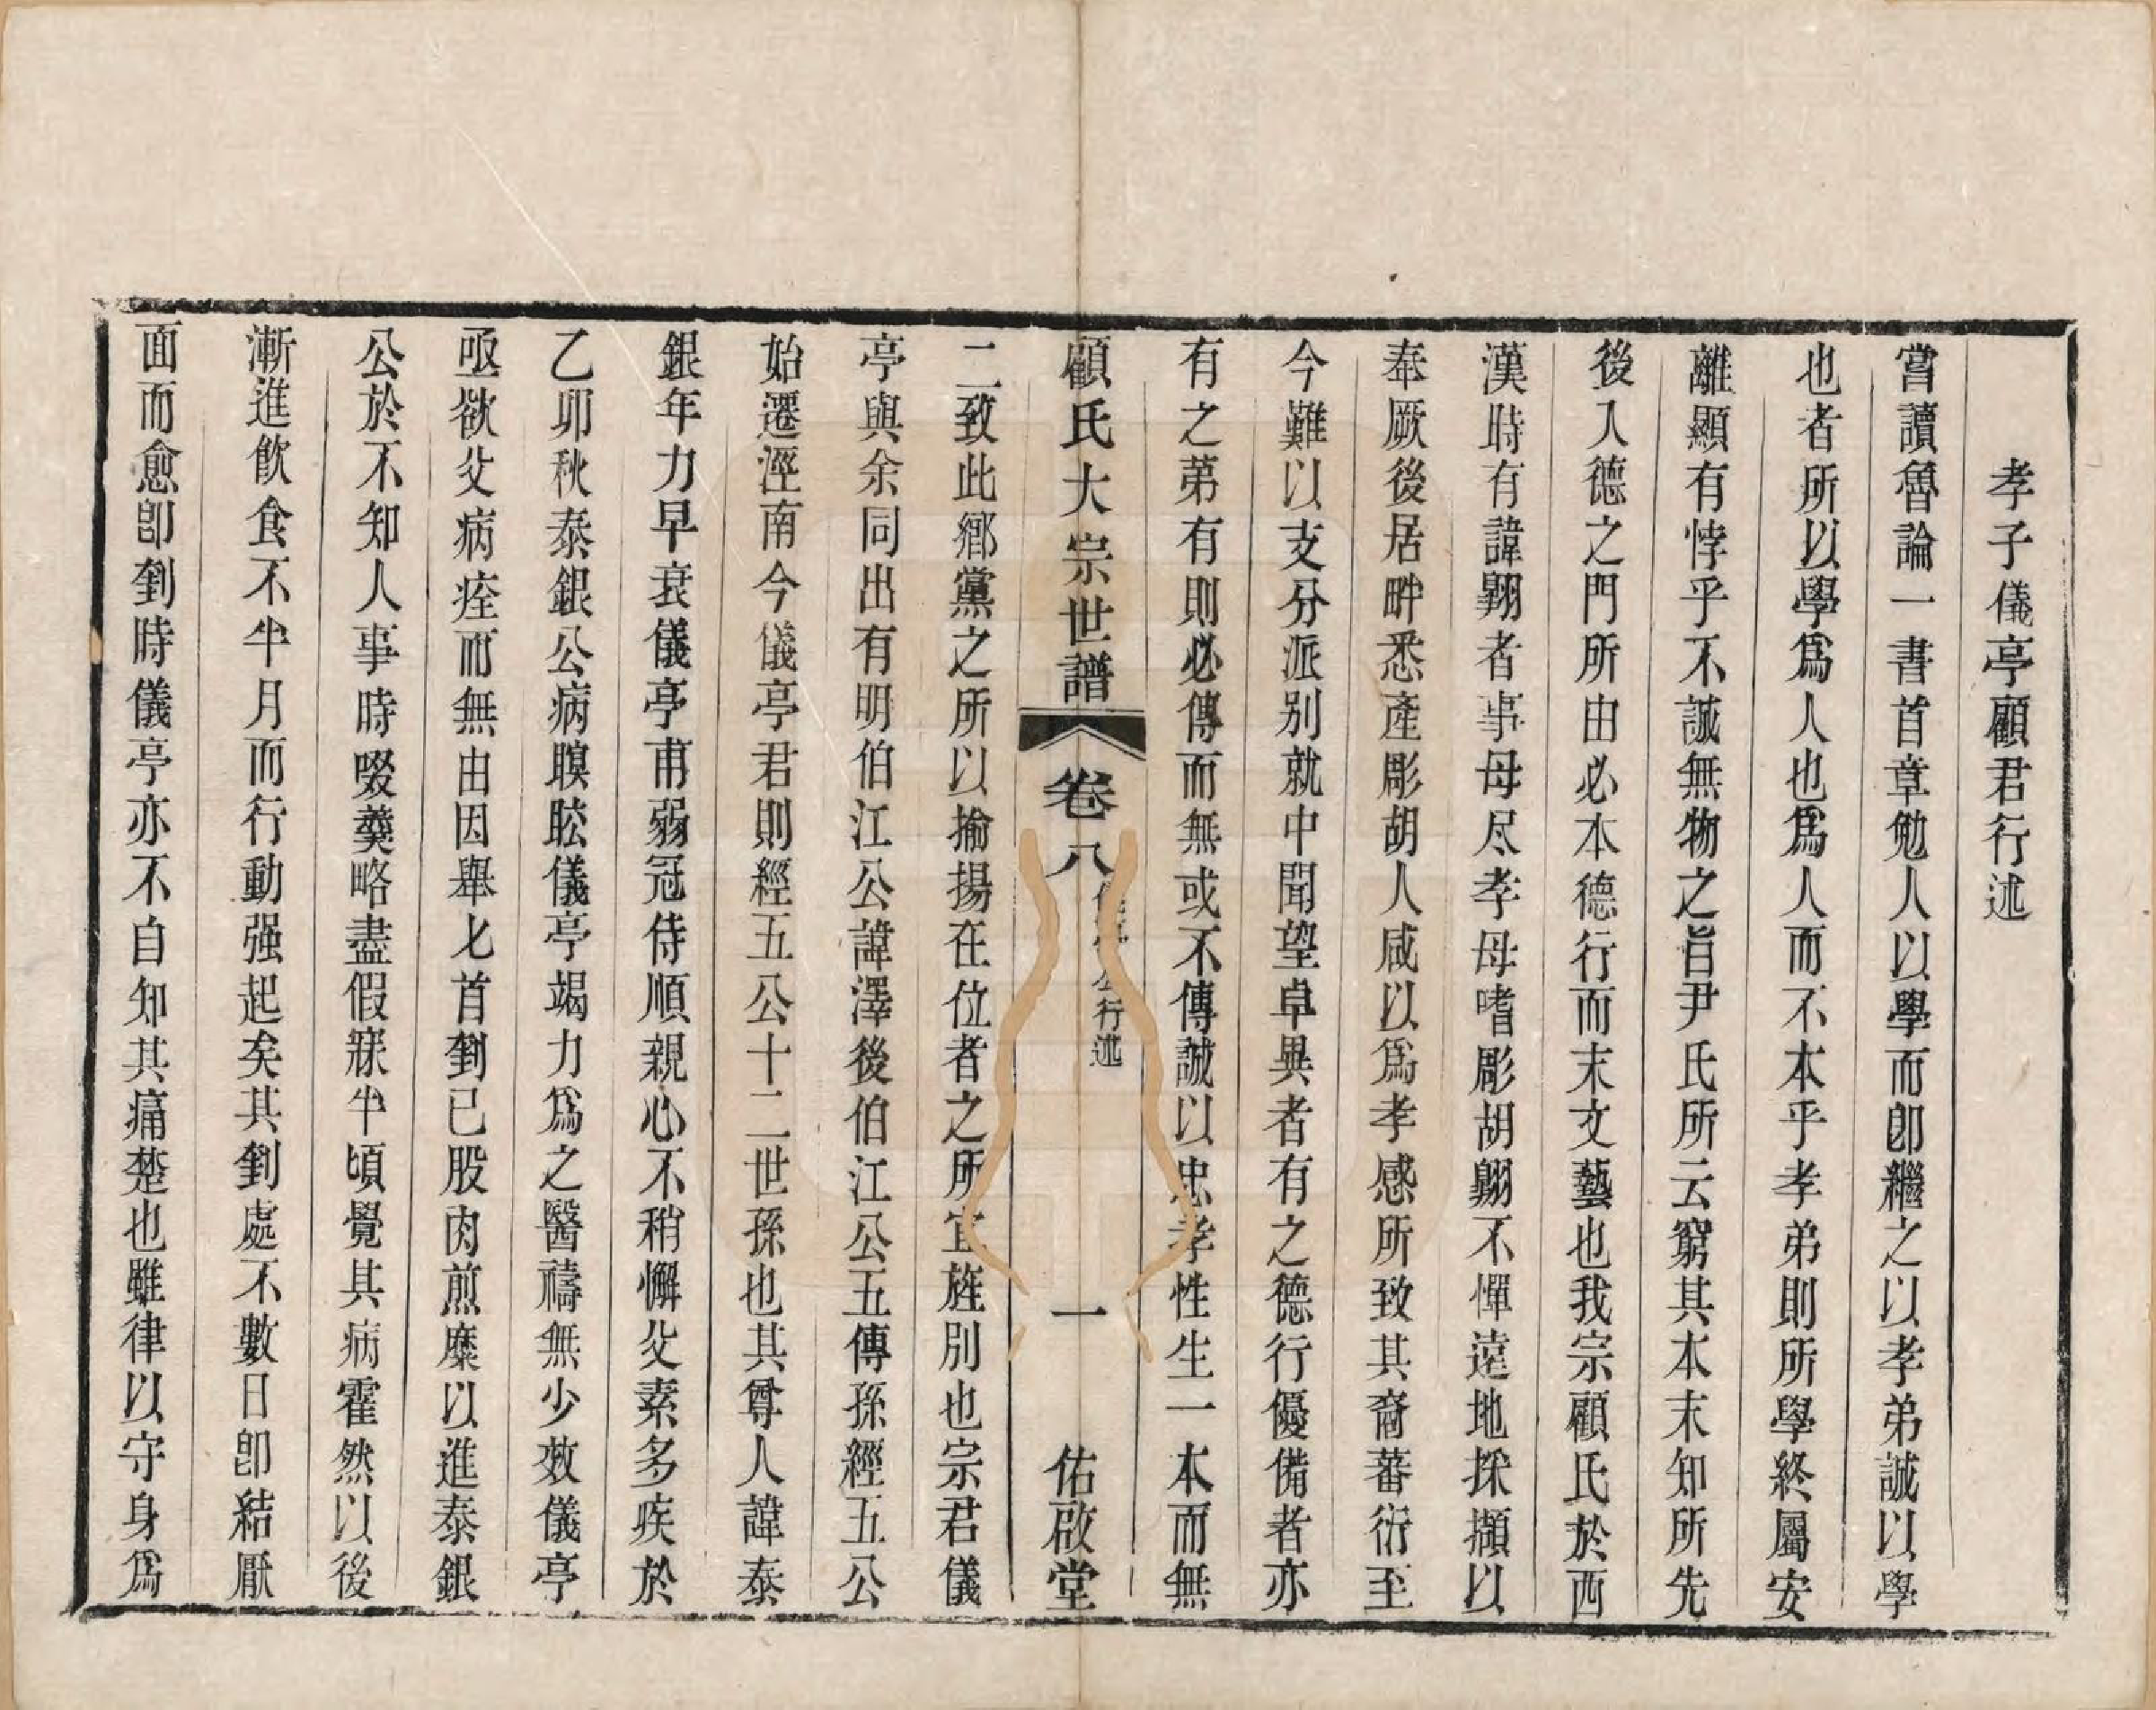 孝子儀亭顧君行述
嘗讀魯論一書首章勉人以學而卽繼之以孝弟誠以學
也者所以學爲人也爲人而不本乎孝弟則所學終屬安
離顯有悖乎不誠無物之旨尹氏所云窮其本末知所先
後入德之門所由必本德行而末文藝也我宗顧氏於西
漢時有諱翺者事母尽孝母嗜彫胡翺不憚遠地採擷以
奉厥後居畔悉產彫胡人咸以爲孝感所致其裔蕃衍至
今難以支分派别就中聞望卓異者有之德行優備者亦
有之第有則必傳而無或不傳誠以忠孝性生一本而無
顧氏大宗世譜 卷八 儀亭公行述 一 佑啟堂
二致此鄉黨之所以揄揚在位者之所宜旌別也宗君儀
亭與余同出有明伯江公諱澤後伯江公五傳孫經五公
始遷涇南今儀亭君則經五公十二世孫也其尊人諱泰
銀年力早衰儀亭甫弱冠侍順親心不稍懈父素多疾於
乙卯秋泰銀公病瞑眩儀亭竭力爲之醫禱無少效儀亭
亟欲父病痊而無由因舉匕首割已股肉煎糜以進泰銀
公於不知人事時啜羹略盡假寐半頃覺其病霍然以後
漸進飲食不半月而行動强起矣其割處不數日卽結厭
面而愈卽割時儀亭亦不自知其痛楚也雖律以守身爲